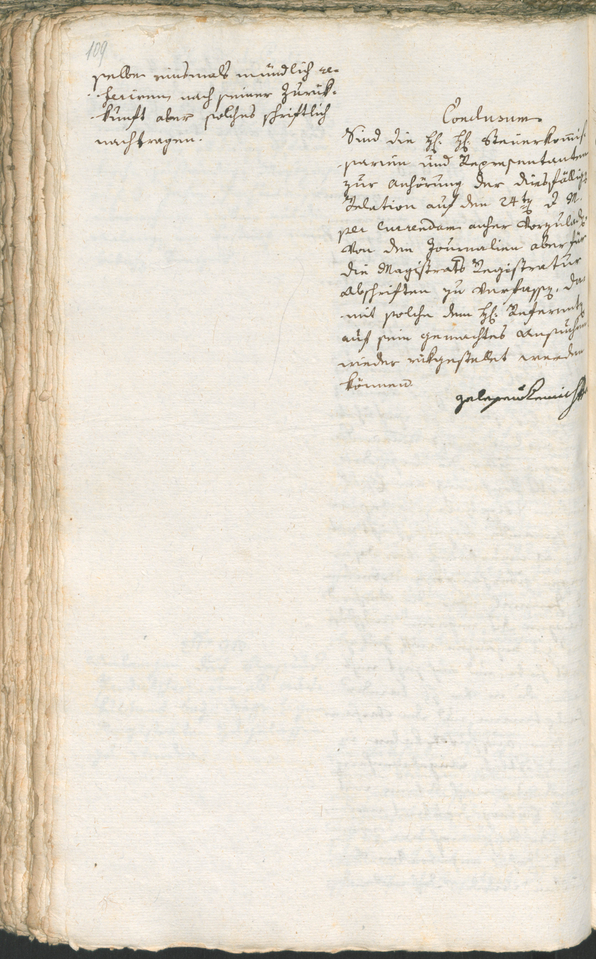 109
selbe einsmals mündlich re-
feriren, nach seiner Zurük-
kunft aber solches schriftlich
nachtragen.
Conclusum.
Sind die H. H. Steuerkomis-
sarien und Repräsentanten
zur Anhörung der diesfälligen
Relation auf den 24ten d. M.
per Currendam anher vorzuladen
Von den Journalien aber für
die Magistrats Registratur
Abschriften zu verfassen, da-
mit solche dem H. Referenten
auf sein gemachtes Ansuchen
wieder rükgestellet werden
können.